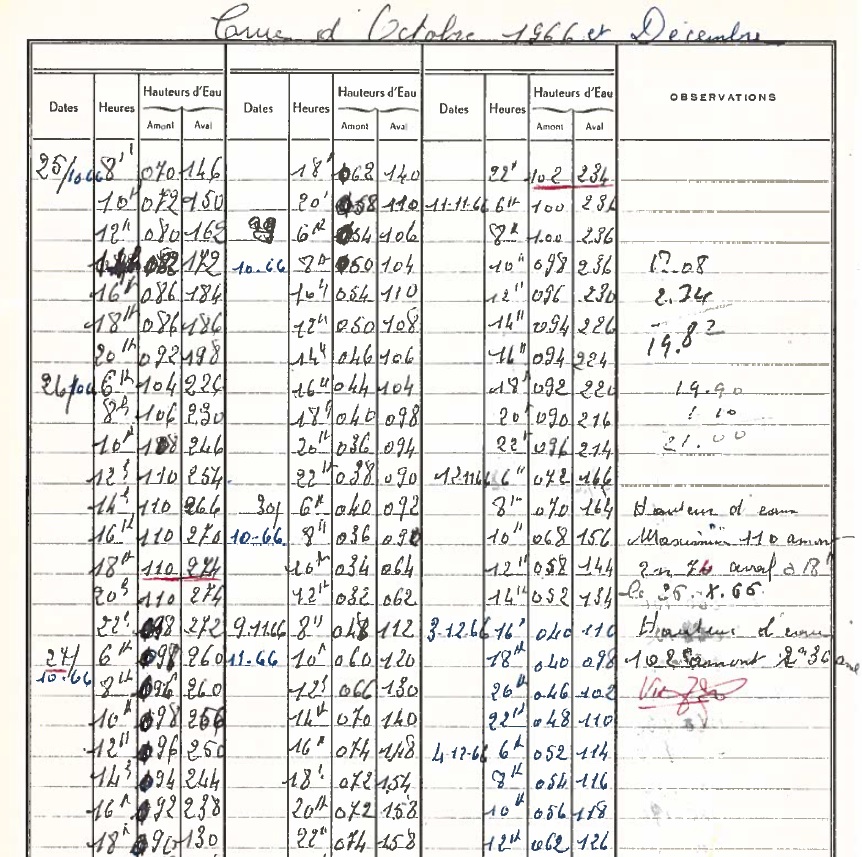 Crue d'Octobre 1966 et Décembre
Dates Heures Hauteurs d'Eau Dates Heures Hauteurs d'Eau Dates Heures Hauteurs d'Eau OBSERVATIONS
Amont Aval Amont Aval Amont Aval
25/10 66 8h 070 146 18h 062 140 22h 102 234
10h 072 150 20h 058 110 11.11.66 6h 100 236
12h 080 162 29 6h 054 106 8h 100 236
082 172 10.66 8h 050 104 10h 098 236 17.08
16h 086 184 10h 054 110 12h 096 230 2.74
18h 086 186 12h 050 108 14h 094 226 19.82
20h 092 198 14h 046 106 16h 094 224
26/10 6h 104 226 16h 044 104 18h 092 220 19.90
8h 106 230 18h 040 098 20h 090 216 1.10
10h 108 246 20h 036 094 22h 096 214 21.00
12h 110 254 22h 038 090 12.11.66 6h 072 166
14h 110 266 30/ 6h 040 092 8h 070 164 Hauteur d'eau
16h 110 270 10.66 8h 036 090 10h 068 156 Maximum 110 amont
18h 110 274 10h 034 064 12h 058 144 2m 74 aval à 18h
20h 110 274 12h 032 062 14h 052 134 le 26.X.66
22h 098 272 9.11.66 8h 048 112 3.12.66 16h 040 110 Hauteur d'eau
27/ 6h 098 260 11.66 10h 060 120 18h 040 098 102 amont 2m36
10.66 8h 096 260 12h 066 130 20h 046 102
10h 098 256 14h 070 140 22h 048 110
12h 096 250 16h 074 148 4.12.66 6h 052 114
14h 094 244 18h 072 154 8h 054 116
16h 092 238 20h 072 158 10h 056 118
18h 090 130 22h 074 158 12h 062 126